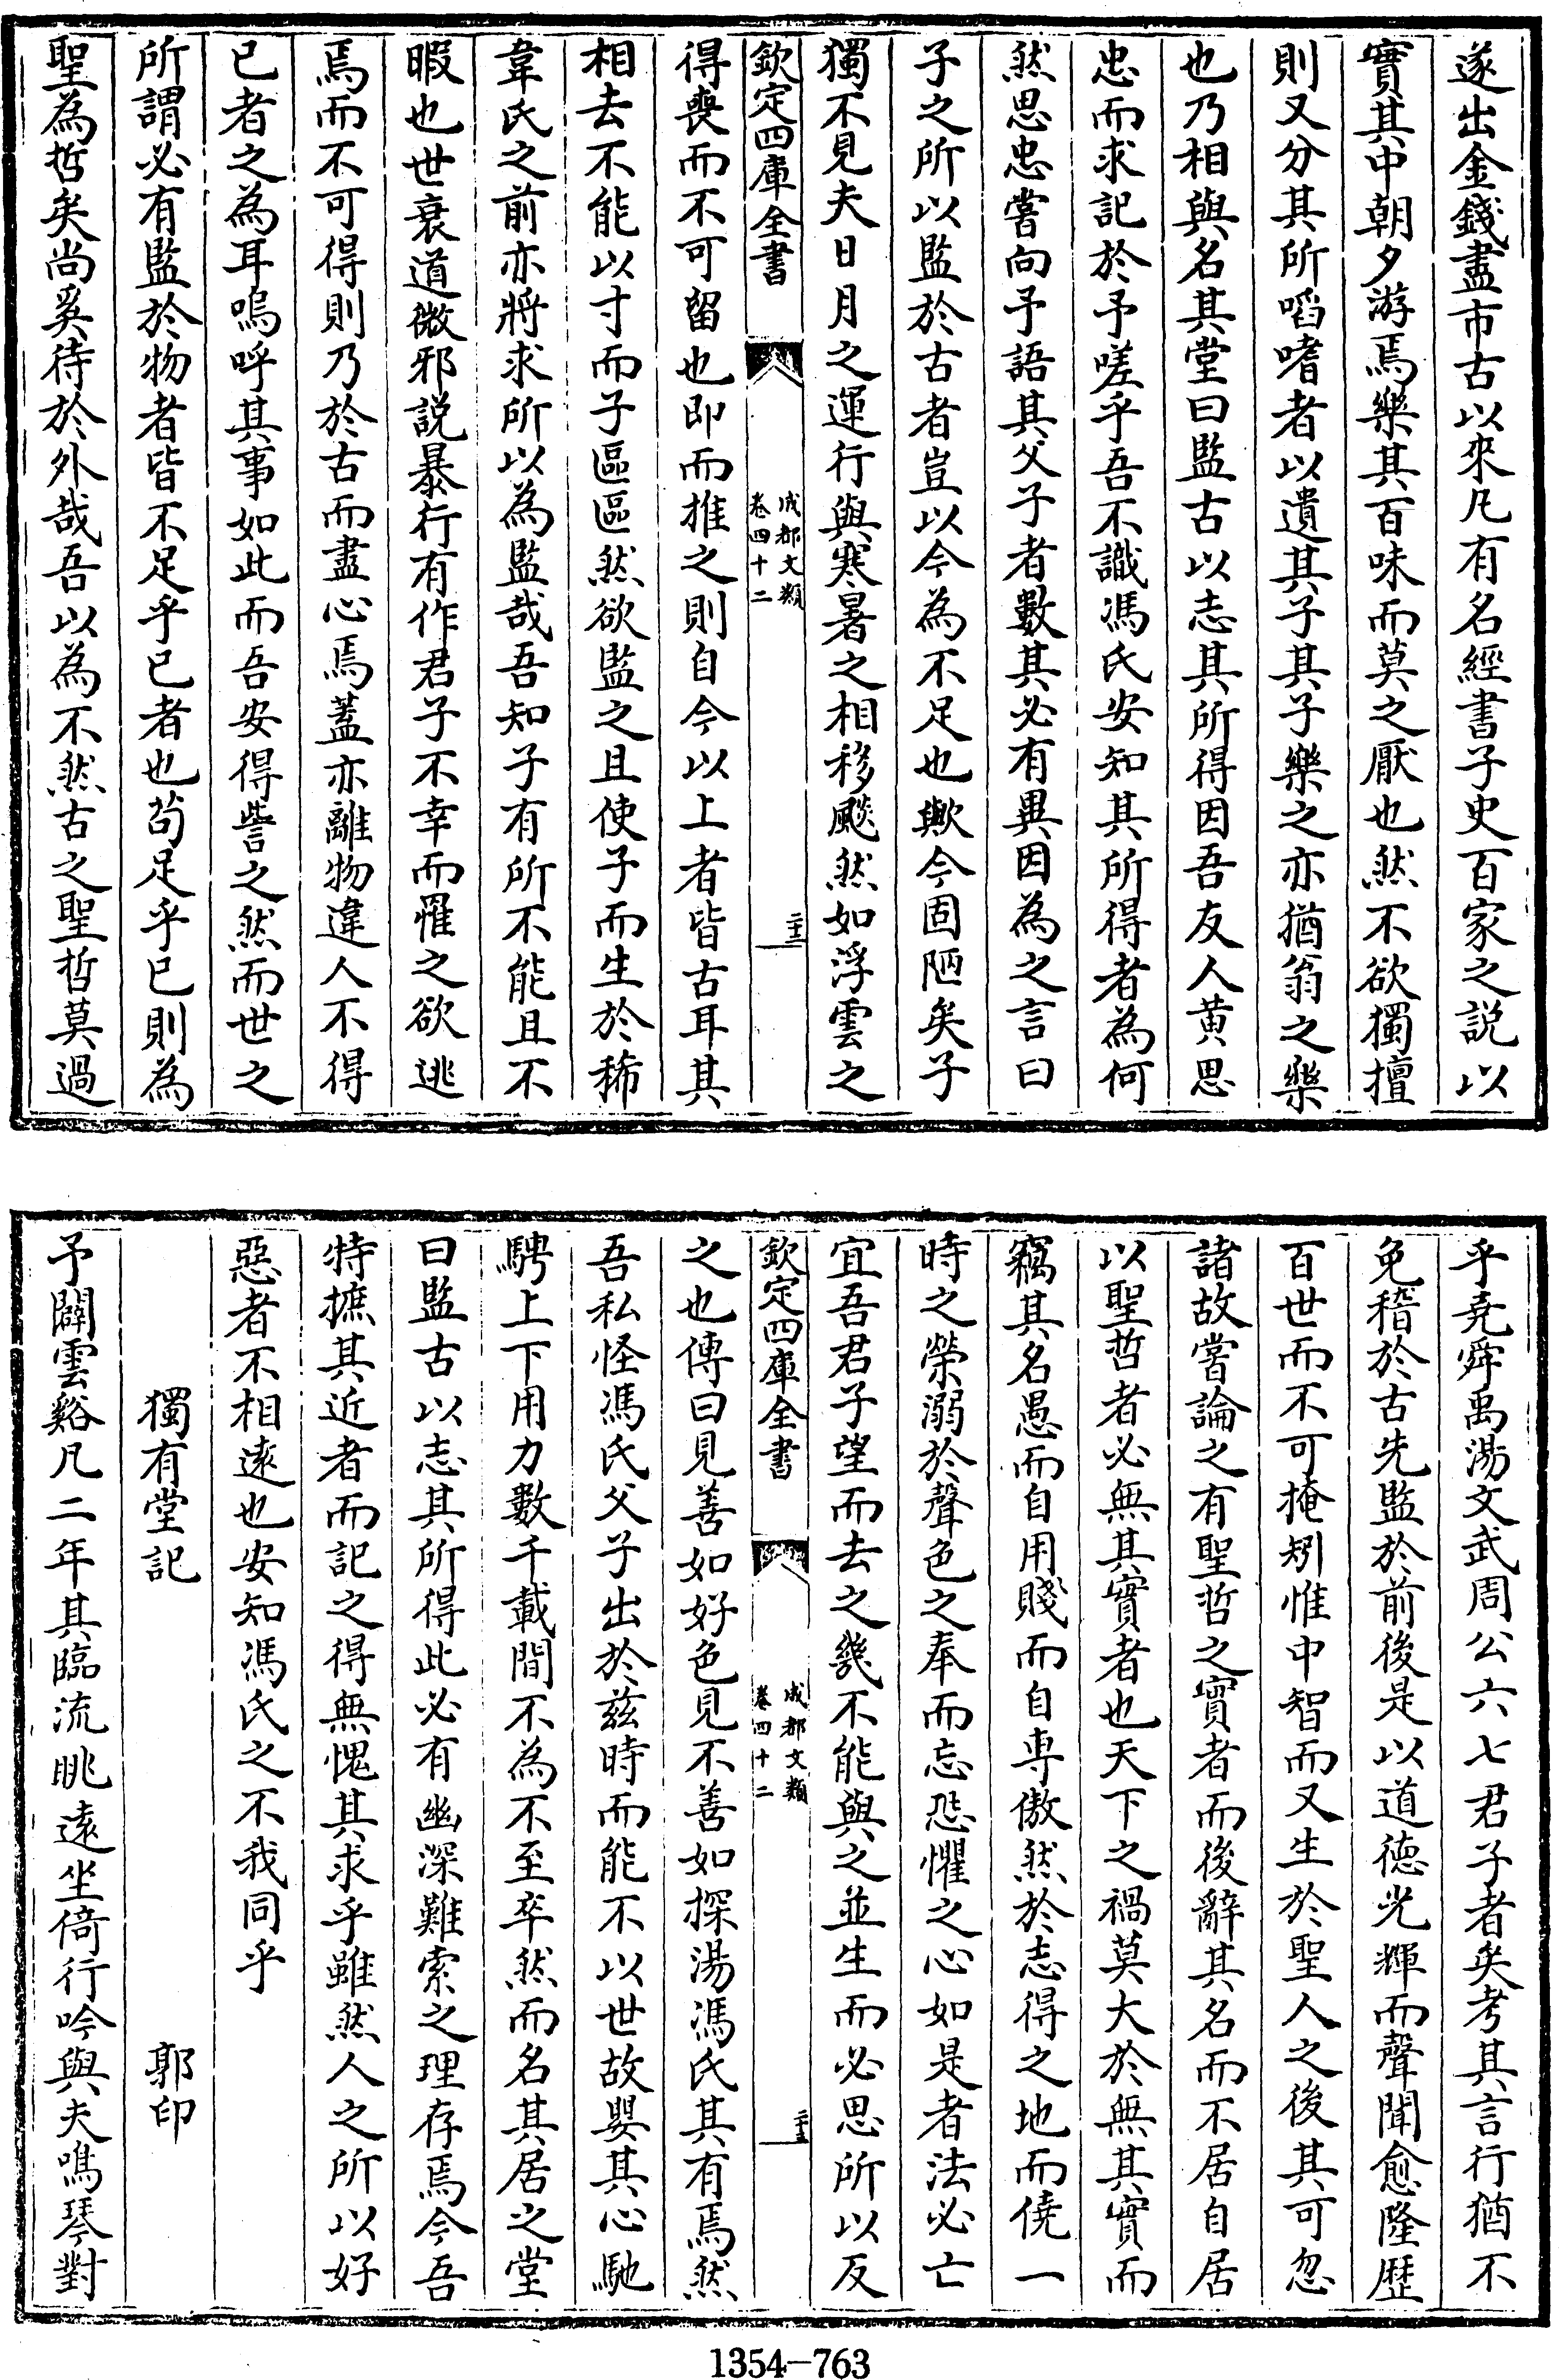 遂出金錢盡市古以來凡有名經書子史百家之説以
實其中朝夕游焉樂其百味而莫之厭也然不欲獨擅
則又分其所㗖嗜者以遺其子其子樂之亦猶翁之樂
也乃相與名其堂曰監古以志其所得因吾友人黄思
忠而求記於予嗟乎吾不識馮氏安知其所得者為何
然思忠嘗向予語其父子者數其必有異因為之言曰
子之所以監於古者豈以今為不足也歟今固陋矣子
獨不見夫日月之運行與寒暑之相移飈然如浮雲之
欽定四庫全書
成都文類
卷四十二
二十三
得喪而不可留也即而推之則自今以上者皆古耳其
相去不能以寸而子區區然欲監之且使子而生於狶
韋氏之前亦將求所以為監哉吾知子有所不能且不
暇也世衰道微邪説暴行有作君子不幸而罹之欲逃
焉而不可得則乃於古而盡心焉蓋亦離物違人不得
已者之為耳嗚呼其事如此而吾安得訾之然而世之
所謂必有監於物者皆不足乎已者也茍足乎已則為
聖為哲矣尚奚待於外哉吾以為不然古之聖哲莫過
乎堯舜禹湯文武周公六七君子者矣考其言行猶不
免稽於古先監於前後是以道徳光輝而聲聞愈隆歴
百世而不可掩矧惟中智而又生於聖人之後其可忽
諸故嘗論之有聖哲之實者而後辭其名而不居自居
以聖哲者必無其實者也天下之禍莫大於無其實而
竊其名愚而自用賤而自専傲然於志得之地而僥一
時之榮溺於聲色之奉而忘恐懼之心如是者法必亡
宜吾君子望而去之㡬不能與之並生而必思所以反
欽定四庫全書
成都文類
卷四十二
二十三
之也傳曰見善如好色見不善如探湯馮氏其有焉然
吾私怪馮氏父子出於兹時而能不以世故嬰其心馳
騁上下用力數千載間不為不至卒然而名其居之堂
曰監古以志其所得此必有幽深難索之理存焉今吾
特摭其近者而記之得無愧其求乎雖然人之所以好
惡者不相逺也安知馮氏之不我同乎
獨有堂記　郭印
予闢雲谿凡二年其臨流眺逺坐倚行吟與夫鳴琴對
1354—763